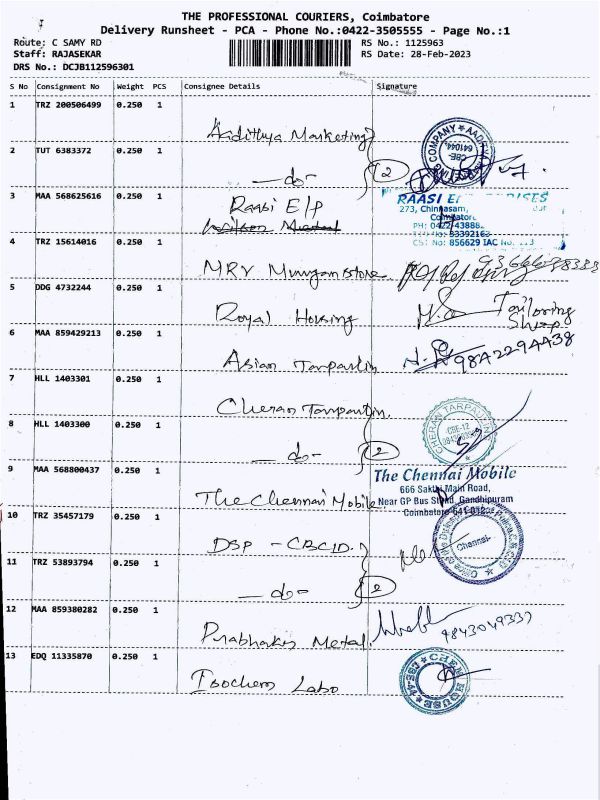 THE PROFESSIONAL COURIERS, Coimbatore
Delivery Runsheet - PCA - Phone No.:0422-3505555 - Page No.:1
Route: C SAMY RD
RS No.: 1125963
Staff: RAJASEKAR
RS Date: 28-Feb-2023
DRS No.: DCJB112596301
S No Consignment No Weight PCS Consignee Details Signature
1 TRZ 200506499 0.250 1
Aadithya Marketing
2 TUT 6383372 0.250 1
do 2
3 MAA 568625616 0.250 1
Raasi E/P
RAASI
273, Chinnasam,
Coimbatore
PH: 0422
CST No: 856629 IAC No.
4 TRZ 15614016 0.250 1
MRV Murugan Store
5 DDG 4732244 0.250 1
Royal Housing
Tailoring
Shop
6 MAA 859429213 0.250 1
Asian Tarpaulin 9842294438
7 HLL 1403301 0.250 1
Cheran Tarpaulin
CHERAN TARPAULIN
CBE-12
8 HLL 1403300 0.250 1
do 2
9 MAA 568800437 0.250 1
The Chennai Mobile
The Chennai Mobile
666 Sakthi Main Road,
Near GP Bus Stand, Gandhipuram
Coimbatore
10 TRZ 35457179 0.250 1
DSP - CBCID
Chennai
11 TRZ 53893794 0.250 1
do 2
12 MAA 859380282 0.250 1
Prabhakar Metal 9843049337
13 EDQ 11335870 0.250 1
Isochem Labo
CHEM HOUSE